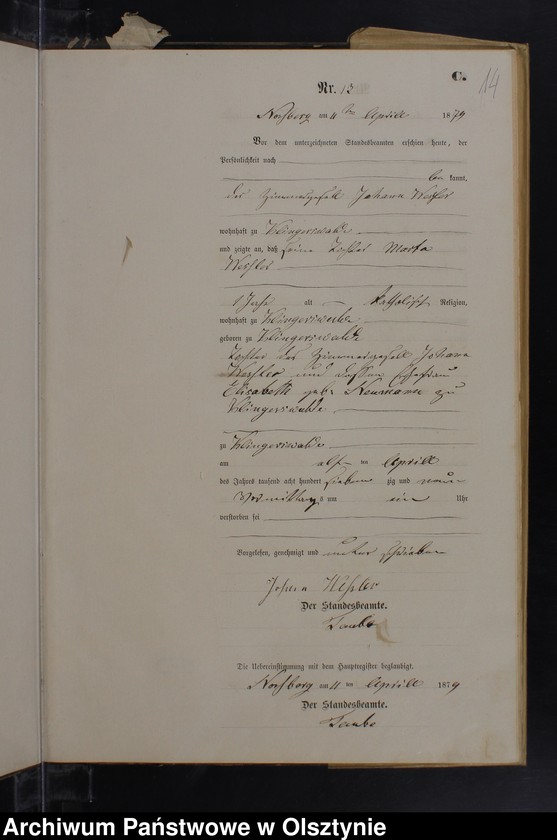 C.
14
Nr. 13
Noßberg am 11 ten Aprill 1879
Vor dem unterzeichneten Standesbeamten erschien heute, der
Persönlichkeit nach
be kannt,
der Zimmergesell Johann
wohnhaft zu Klingerswalde
und zeigte an, daß seine Tochter Marta
1 Jahr alt katholisch Religion,
wohnhaft zu Klingerswalde
geboren zu Klingerswalde
Tochter des Zimmergesell Johann
und dessen Ehefrau
Elisabeth geb. Neumann zu
Klingerswalde
zu Klingerswalde
am elf ten Aprill
des Jahres tausend acht hundert sieben zig und neun
Vormittags um ein Uhr
verstorben sei
Vorgelesen, genehmigt und unterschrieben
Der Standesbeamte.
Taube
Die Uebereinstimmung mit dem Hauptregister beglaubigt.
Noßberg am 11 ten Aprill 1879
Der Standesbeamte.
Taube
Archiwum Państwowe w Olsztynie